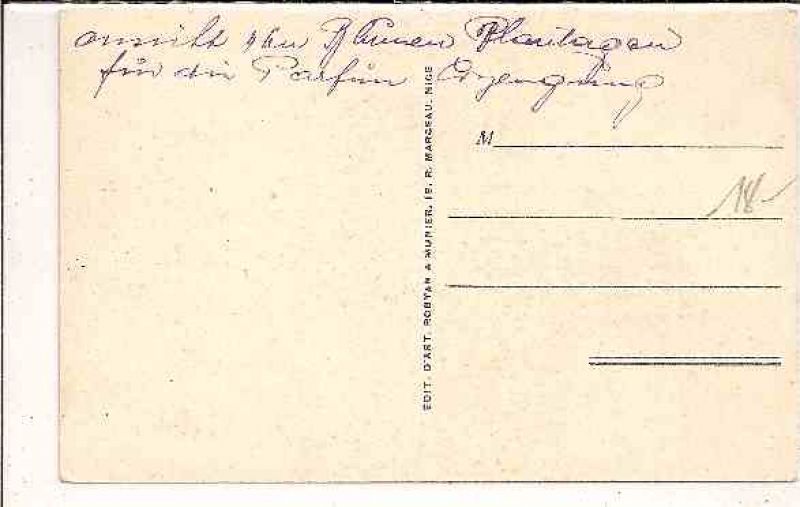 Ansicht von Blumen Plantagen
für die Parfüm Erzeugung
M
18-
EDIT. D'ART. ROSTAN & MUNIER, 16, R. MARCEAU, NICE